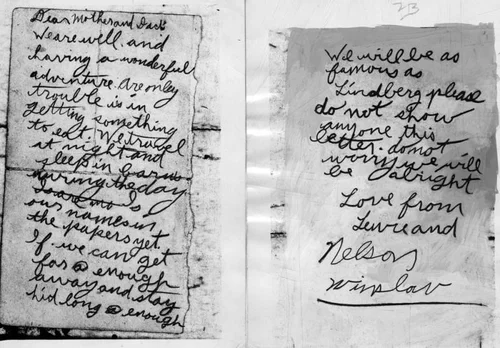 Dear Mother and Dad:
We are well. and
having a wonderful
adventure. Are only
trouble is in
getting something
to eat. We travel
at night and
sleep in barns
during the day
Is
our names in
the papers yet.
If we can get
far enough
away and stay
hid long enough
23
We will be as
famous as
Lindberg please
do not show
anyone this
letter. do not
worry we will
be alright
Love from
Lewie and
Nelson
Winslow